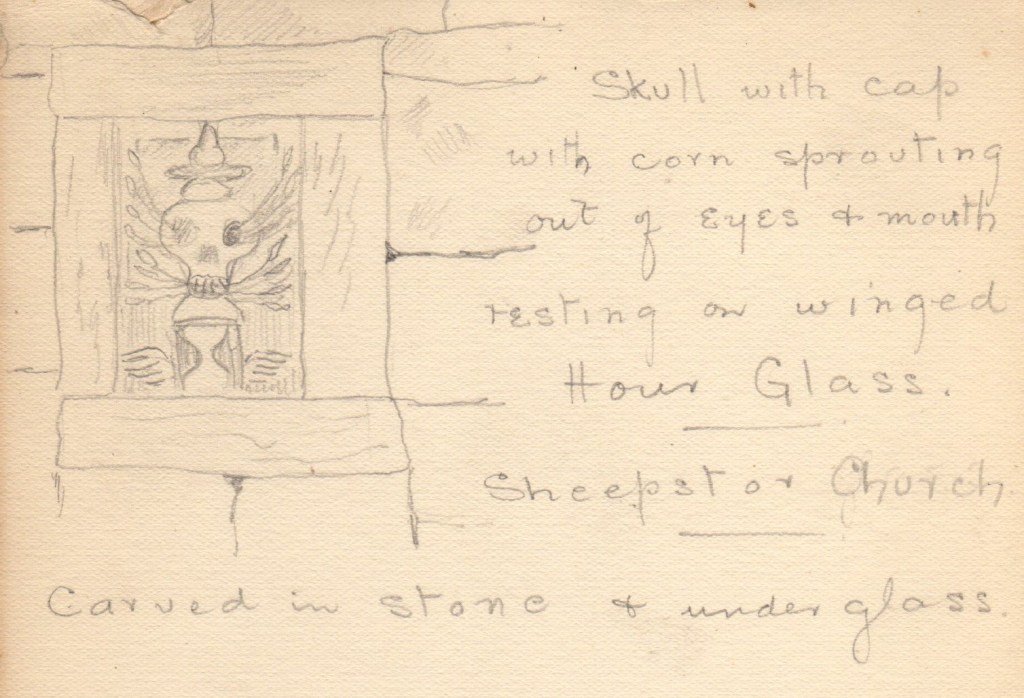 Skull with cap
with corn sprouting
out of eyes & mouth
resting on winged
Hour Glass.
Sheepstor Church
Carved in stone & under glass.